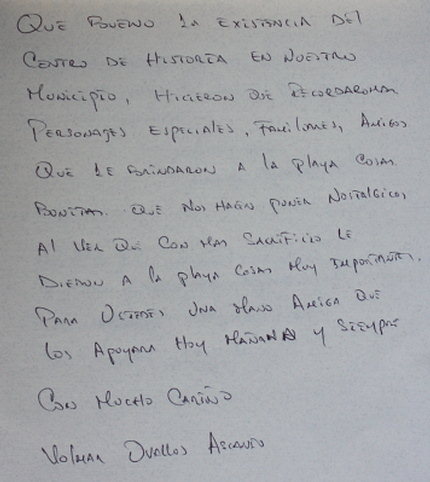 Que Bueno la Existencia Del
Centro De Historia En Nuestro
Municipio, Hicieron Que Recordaroman
Personages Especiales, Familiares, Amigos
Que le Brindaron A la playa Cosas
Bonitas. Que Nos Hacen poner Nostalgicos,
Al Ver Que Con Mas Sacrificio le
Dieron A la playa Cosas Muy Importantes.
Para Ustedes Una Mano Amiga Que
los Apoyara Hoy Mañana y Siempre
Con Mucho Cariño
Volmar Ovallos Ascanio